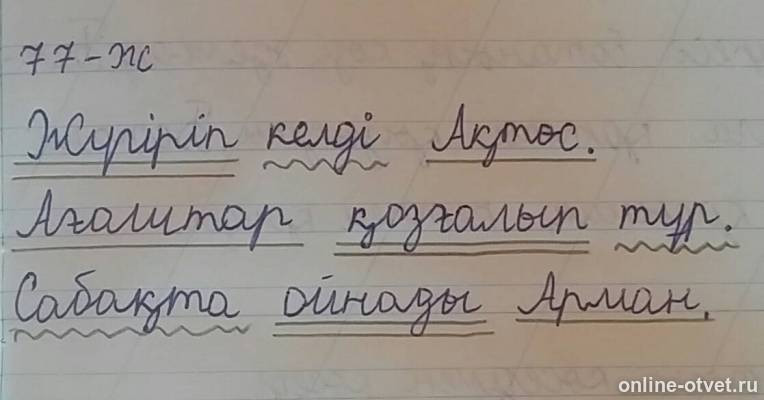 77-ж
Жүгіріп келді Ақтөс.
Ағаштар қозғалып тұр.
Сабақта ойнады Арман.
online-otvet.ru